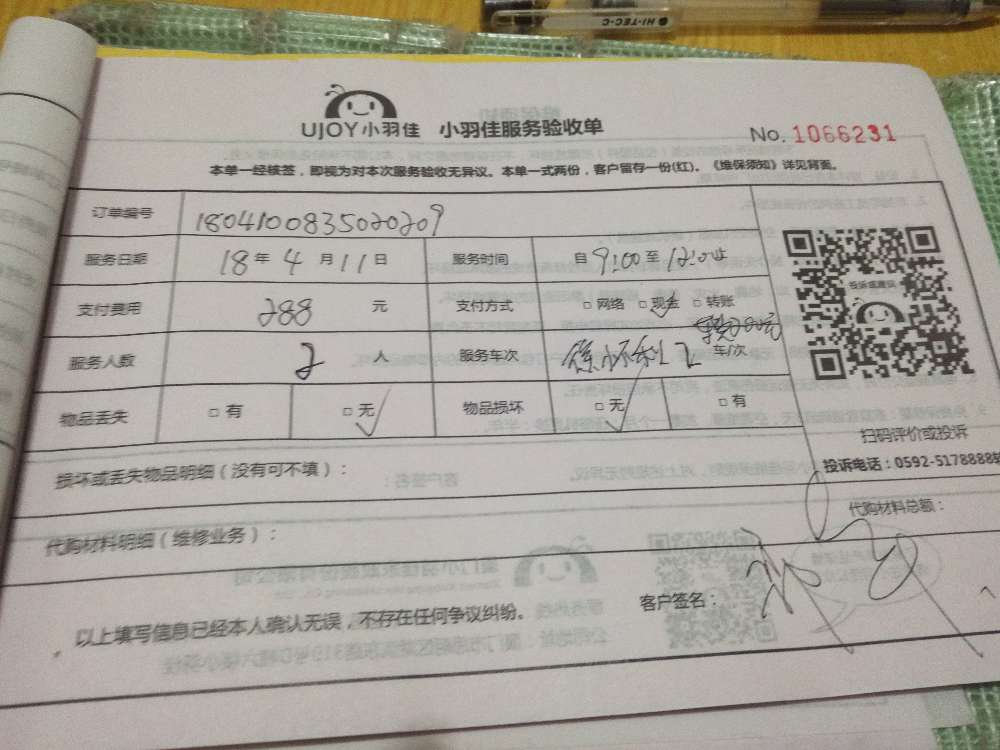 HI-TEC-C
UJOY小羽佳 小羽佳服务验收单
No. 1066231
本单一经核签，即视为对本次服务验收无异议。本单一式两份，客户留存一份(红)。《维保须知》详见背面。
订单编号 1804100835020209
服务日期 18年4月11日 服务时间 自9:00至12:00止
投诉或建议
支付费用 288 元 支付方式 □网络 □现金 □转账
服务人数 2 人 服务车次 2 车/次
物品丢失 □有 □无 物品损坏 □无 □有
扫码评价或投诉
投诉电话：0592-5178888
损坏或丢失物品明细（没有可不填）：
代购材料明细（维修业务）：
代购材料总额：
以上填写信息已经本人确认无误，不存在任何争议纠纷。
客户签名：